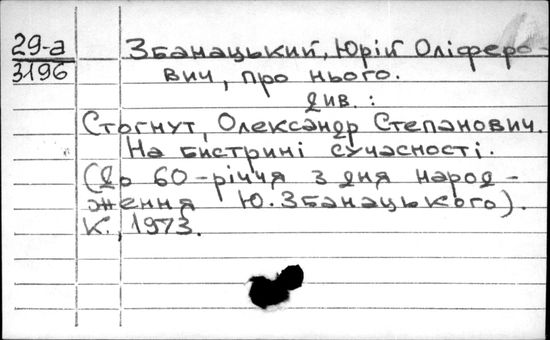 29-а Збанацький, Юрій Оліферо-
3196 вич, про нього.
див.:
Стогнут, Олександр Степанович.
На бистрині сучасності.
(До 60-річчя з дня народ-
ження Ю. Збанацького).
К., 1973.